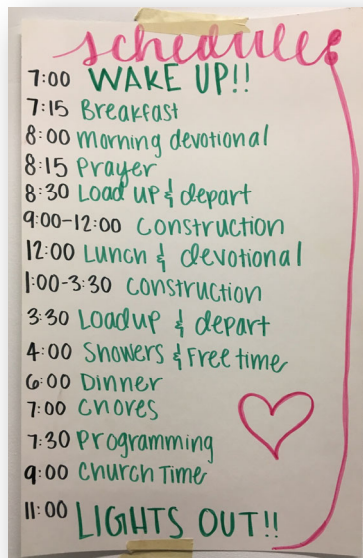 schedule:
7:00 WAKE UP!!
7:15 Breakfast
8:00 morning devotional
8:15 Prayer
8:30 Load up & depart
9:00-12:00 Construction
12:00 Lunch & devotional
1:00-3:30 construction
3:30 Loadup & depart
4:00 Showers & Free time
6:00 Dinner
7:00 Chores
7:30 Programming
9:00 Church Time
11:00 LIGHTS OUT!!